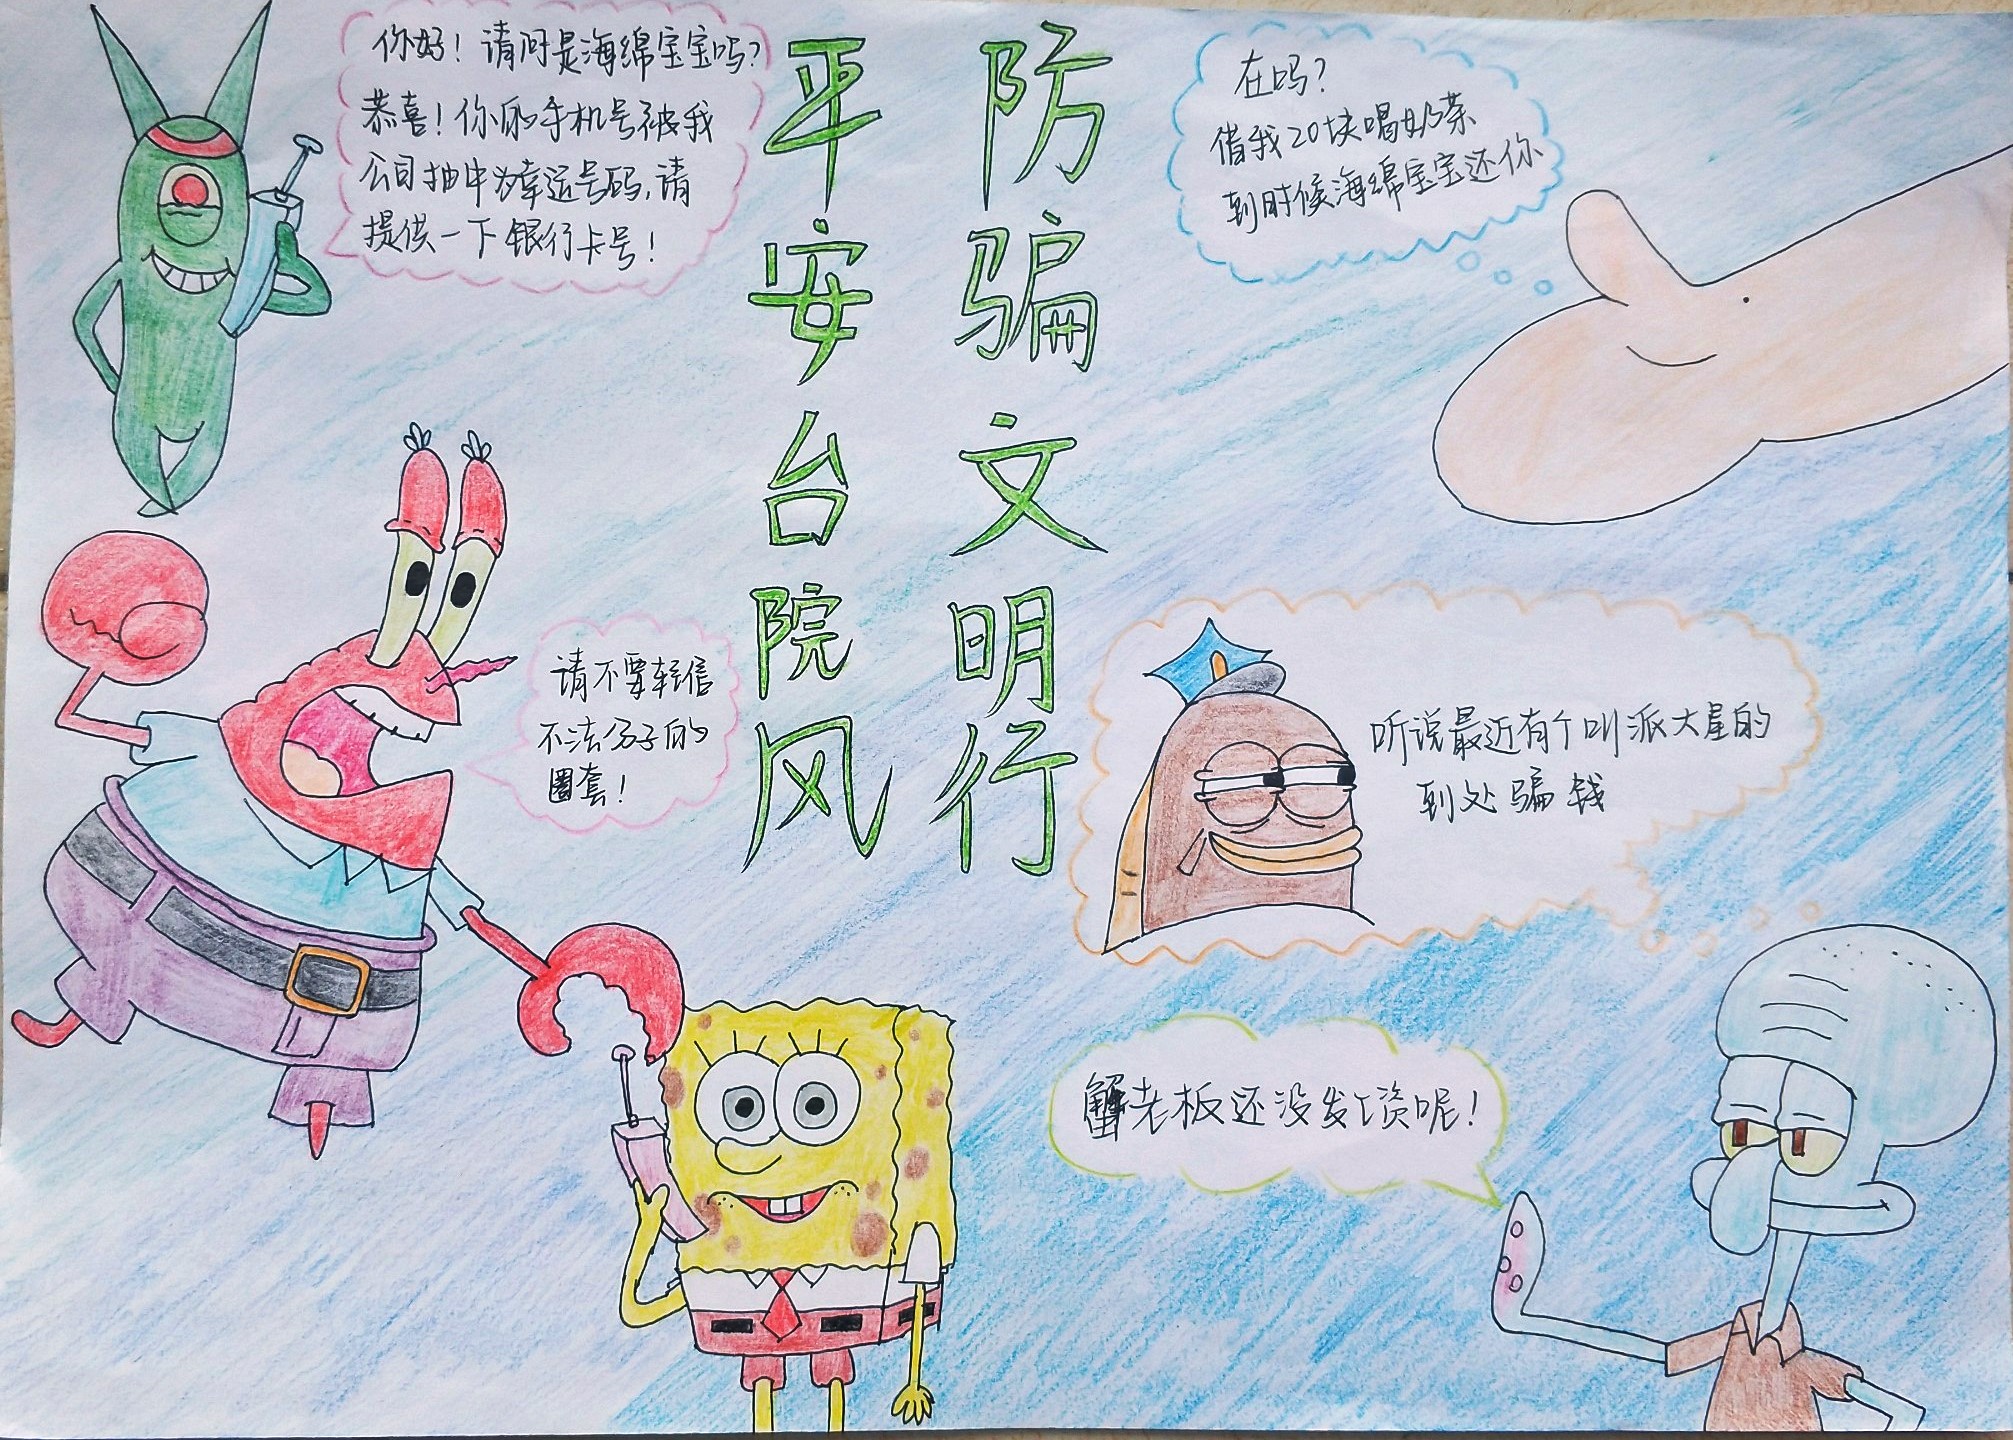 你好！请问是海绵宝宝吗？
恭喜！你的手机号被我
公司抽中为幸运号码，请
提供一下银行卡号！
防骗文明行
平安台院风
在吗？
借我20块喝奶茶
到时候海绵宝宝还你
请不要轻信
不法分子的
圈套！
听说最近有个叫派大星的
到处骗钱
蟹老板还没发工资呢！